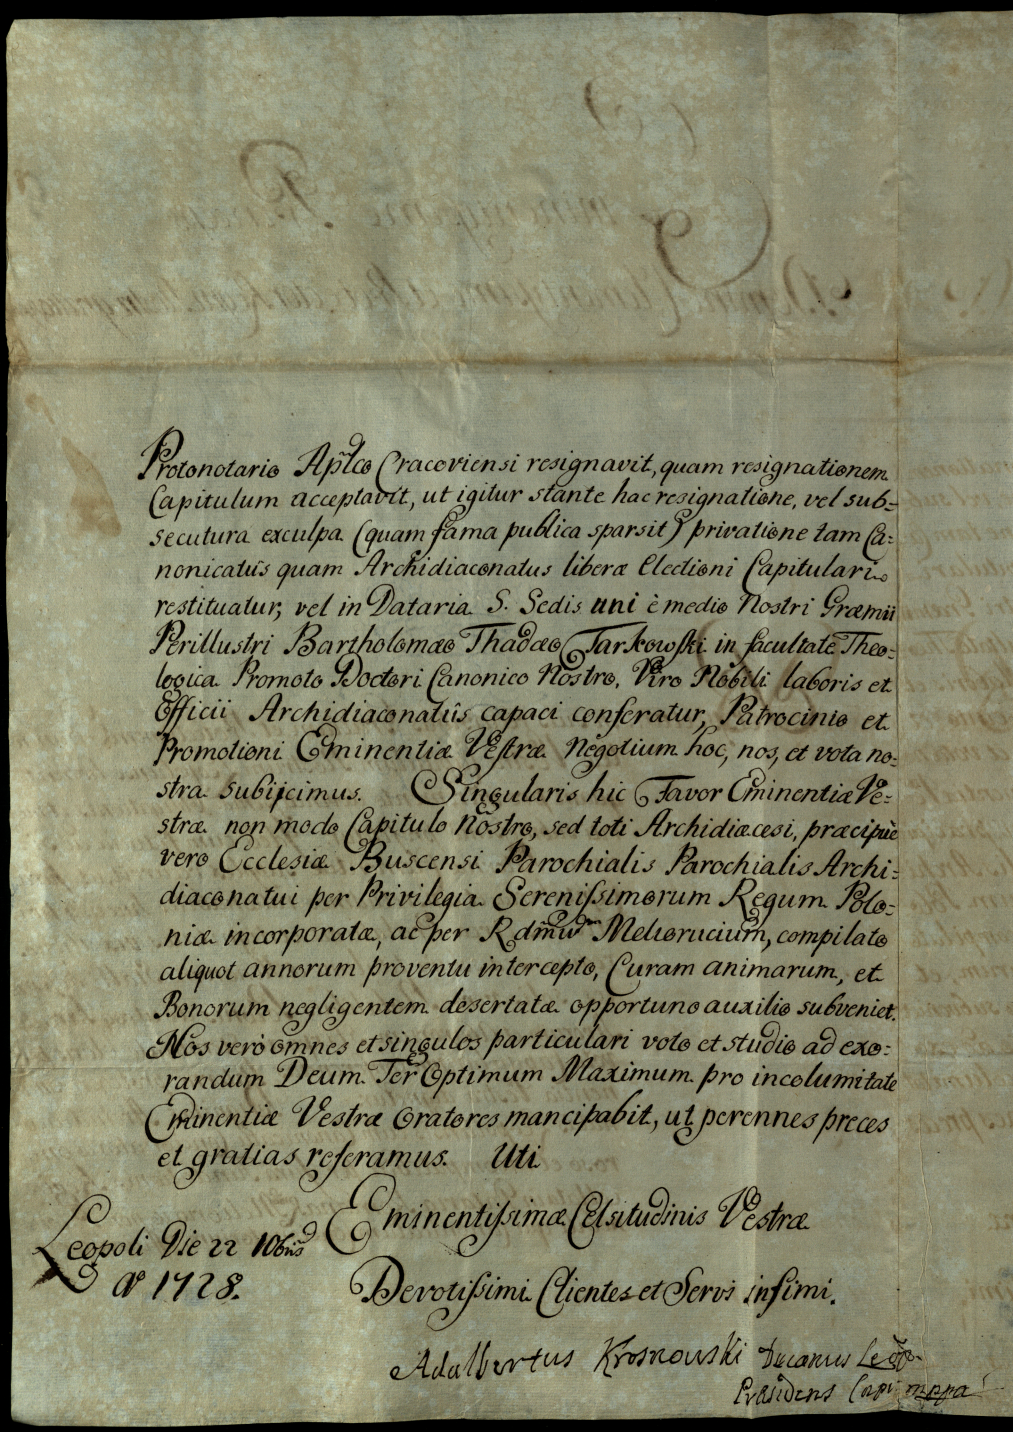 Protonotario Aplco Cracoviensi resignavit, quam resignationem
Capitulum acceptavit, ut igitur stante hac resignatione, vel sub=
secutura exculpa (quam fama publica sparsit) privatione tam Ca=
nonicatus quam Archidiaconatus liberæ Electioni Capitulari
restituatur, vel in Dataria S. Sedis uni è medio Nostri Græmii
Perillustri Bartholomæo Thadæo Tarkowski in facultate Theo=
logica Promoto Doctori Canonico Nostro, Viro Nobili laboris et
Officii Archidiaconatûs capaci conferatur, Patrocinio et
Promotioni Eminentiæ Vestræ Negotium hoc, nos, et vota no=
stra subijcimus. Singularis hic Favor Eminentiæ Ve=
stræ non modo Capitulo Nostro, sed toti Archidiæcesi, præcipuè
vero Ecclesiæ Buscensi Parochialis Parochialis Archi=
diaconatui per Privilegia Serenissimorum Regum Polo=
niæ incorporatæ, ac per Rdmum Meliorucium, compilato
aliquot annorum proventu intercepto, Curam animarum, et
Bonorum negligentem desertatæ opportuno auxilio subveniet.
Nos verò omnes et singulos particulari voto et studio ad exo=
randum Deum Ter Optimum Maximum pro incolumitate
Eminentiæ Vestræ Oratores mancipabit, ut perennes preces
et gratias referamus. Uti
Eminentissimæ Celsitudinis Vestræ
Leopoli Die 22 10bris
Aº 1728.
Devotissimi Clientes et Servi infimi.
Adalbertus Krosnowski Decanus Leop.
Præsidens